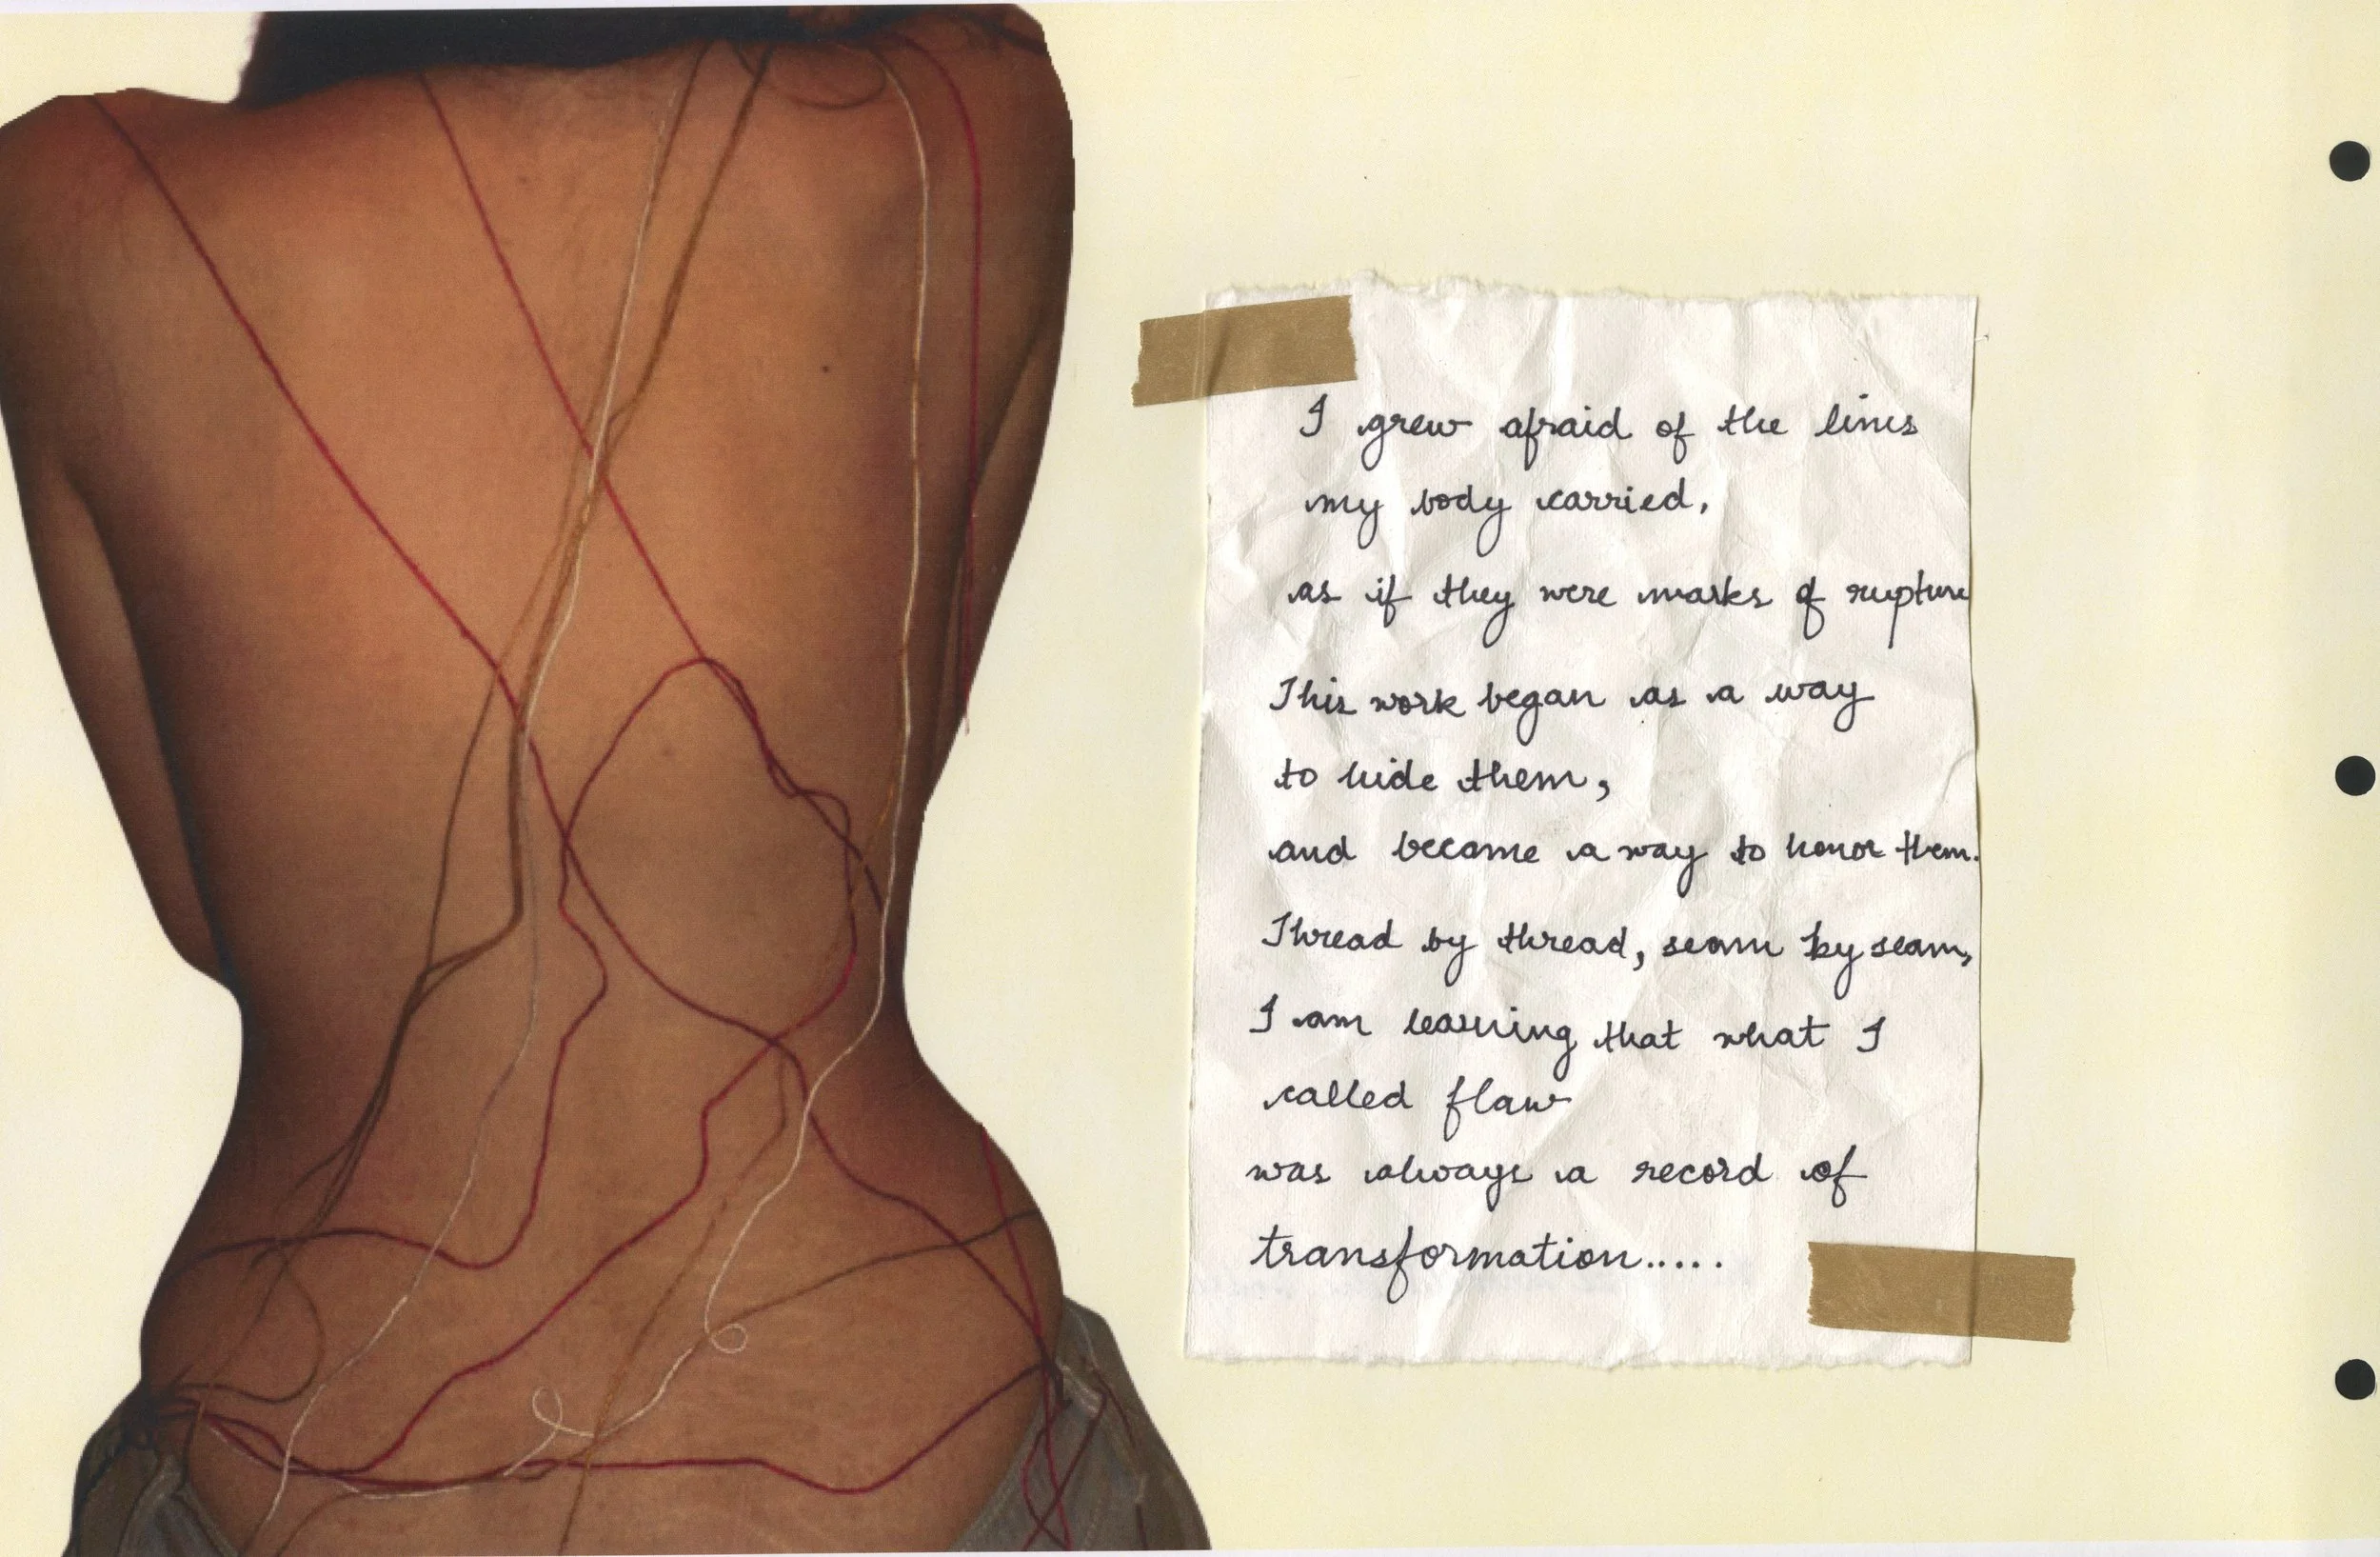 I grew afraid of the lines
my body carried,
as if they were marks of rupture
This work began as a way
to hide them,
and became a way to honor them.
Thread by thread, seam by seam,
I am learning that what I
called flaw
was always a record of
transformation.....